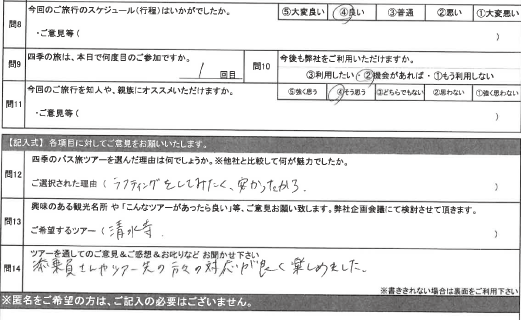 問8 今回のご旅行のスケジュール(行程)はいかがでしたか。 ⑤大変良い ④良い ③普通 ②悪い ①大変悪い
・ご意見等( )
問9 四季の旅は、本日で何度目のご参加ですか。 1 回目
問10 今後も弊社をご利用いただけますか。
③利用したい・②機会があれば・①もう利用しない
問11 今回のご旅行を知人や、親族にオススメいただけますか。 ⑤強く思う ④そう思う ③どちらでもない ②思わない ①強く思わない
・ご意見等( )
【記入式】各項目に対してご意見をお願いいたします。
問12 四季のバス旅ツアーを選んだ理由は何でしょうか。※他社と比較して何が魅力でしたか。
ご選択された理由( ラフティングをしてみたく、安かったから。 )
問13 興味のある観光名所 や「こんなツアーがあったら良い」等、ご意見お願い致します。弊社企画会議にて検討させて頂きます。
ご希望するツアー( 清水寺 )
問14 ツアーを通してのご意見&ご感想&お叱りなど お聞かせ下さい
添乗員さんやツアー先の方々の対応が良く楽しめました。
※書ききれない場合は裏面をご利用下さい
※匿名をご希望の方は、ご記入の必要はございません。